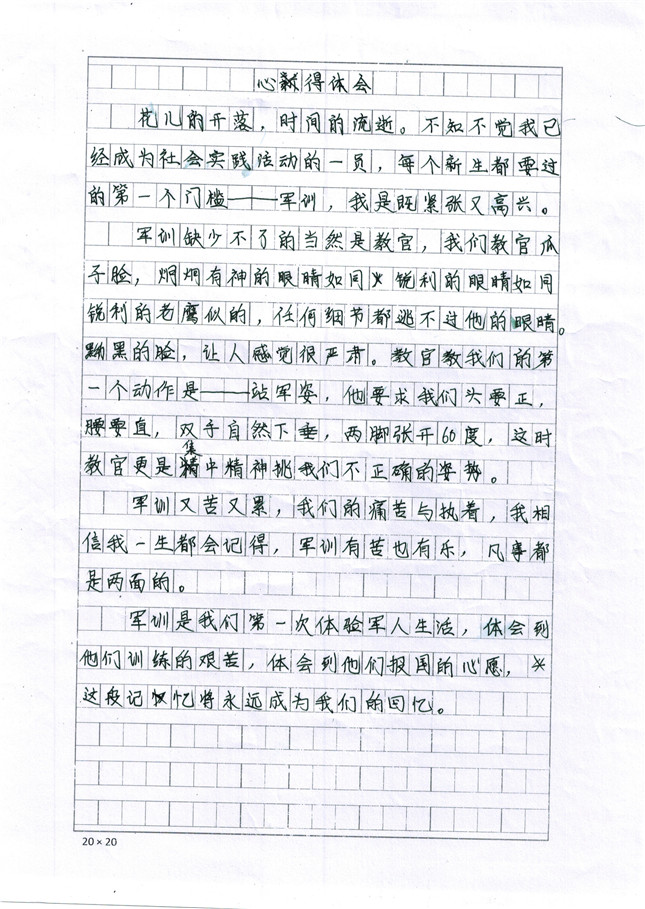 心得体会
花儿的开落，时间的流逝。不知不觉我已
经成为社会实践活动的一员，每个新生都要过
的第一个门槛——军训，我是既紧张又高兴。
军训缺少不了的当然是教官，我们教官瓜
子脸，炯炯有神的眼睛如同锐利的眼睛如同
锐利的老鹰似的，任何细节都逃不过他的眼睛。
黝黑的脸，让人感觉很严肃。教官教我们的第
一个动作是——站军姿，他要求我们头要正，
腰要直，双手自然下垂，两脚张开60度，这时
教官更是集中精神挑我们不正确的姿势。
军训又苦又累，我们的痛苦与执着，我相
信我一生都会记得，军训有苦也有乐，凡事都
是两面的。
军训是我们第一次体验军人生活，体会到
他们训练的艰苦，体会到他们报国的心愿，
这段记忆将永远成为我们的回忆。
20×20